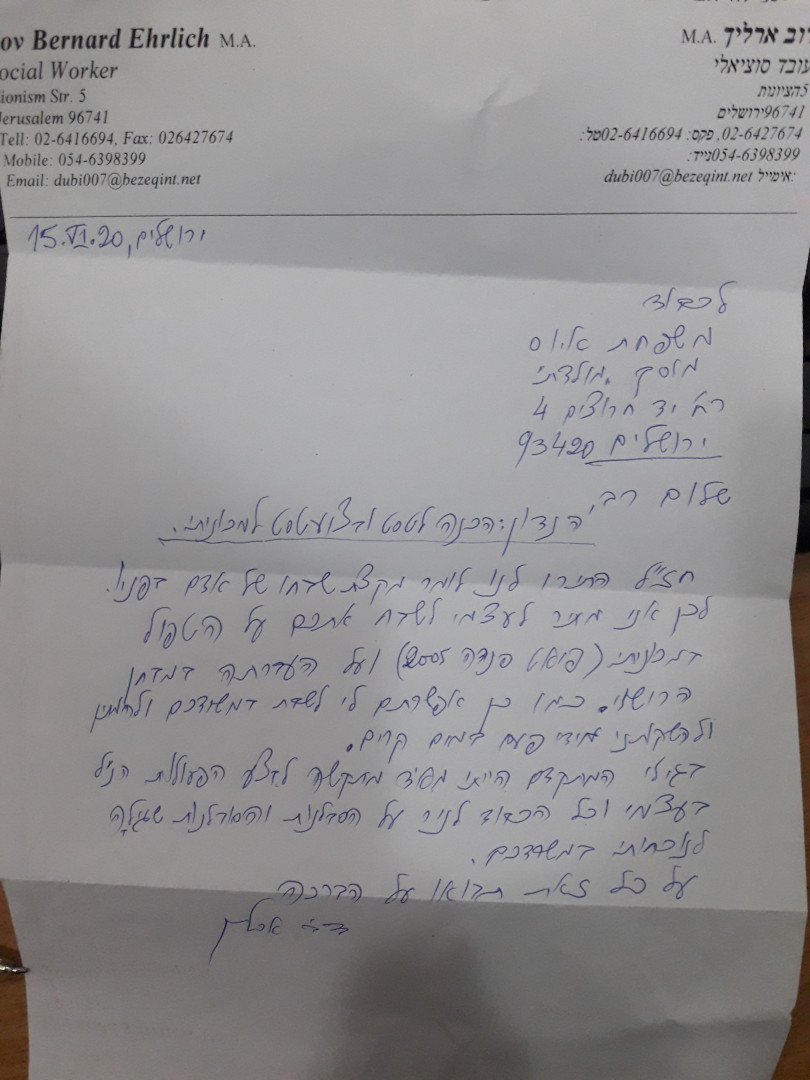 ov Bernard Ehrlich M.A.
ocial Worker
ionism Str. 5
Jerusalem 96741
Tell: 02-6416694, Fax: 026427674
Mobile: 054-6398399
Email: dubi007@bezeqint.net
דוב ארליך M.A.
עובד סוציאלי
5הציונות
96741ירושלים
02-6427674, פקס: 02-6416694טל:
054-6398399נייד:
dubi007@bezeqint.net אימייל:
ירושלים, 15.VI.20
לכבוד
משפחת
מוסך מולדתי
רח' יד חרוצים 4
ירושלים 93420
שלום רב,
הנדון: הכנה לטסט וביצוע טסט למכוניתי.
חז"ל התירו לנו לומר מקצת שבחו של אדם בפניו.
לכן אני מתיר לעצמי לשבח אתכם על הטפול
במכוניתי (פיאט פנדה 2005) ועל העברתה במבחן
הרישוי. כמו כן אפשרתם לי לשבת במשרדכם ולהמתין
ולהשקותני מידי פעם במים קרים.
בגילי המתקדם הייתי מתקשה לבצע הפעולות הנ"ל
בעצמי וכל הכבוד לניר על הסבלנות והסובלנות שגילה
לנוכחותי במשרדכם.
על כל זאת תבואו על הברכה